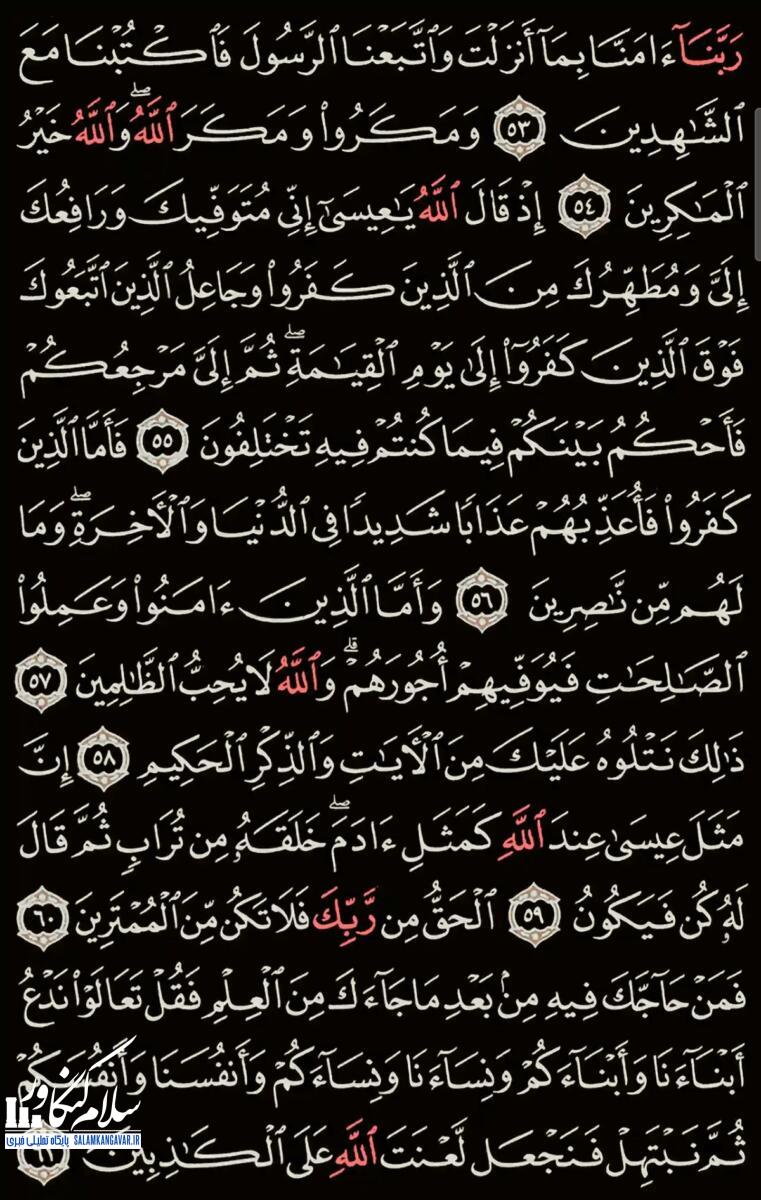 رَبَّنَآ ءَامَنَّا بِمَآ أَنزَلْتَ وَٱتَّبَعْنَا ٱلرَّسُولَ فَٱكْتُبْنَا مَعَ
ٱلشَّٰهِدِينَ ٥٣ وَمَكَرُوا۟ وَمَكَرَ ٱللَّهُ ۖ وَٱللَّهُ خَيْرُ
ٱلْمَٰكِرِينَ ٥٤ إِذْ قَالَ ٱللَّهُ يَٰعِيسَىٰٓ إِنِّي مُتَوَفِّيكَ وَرَافِعُكَ
إِلَيَّ وَمُطَهِّرُكَ مِنَ ٱلَّذِينَ كَفَرُوا۟ وَجَاعِلُ ٱلَّذِينَ ٱتَّبَعُوكَ
فَوْقَ ٱلَّذِينَ كَفَرُوٓا۟ إِلَىٰ يَوْمِ ٱلْقِيَٰمَةِ ۖ ثُمَّ إِلَيَّ مَرْجِعُكُمْ
فَأَحْكُمُ بَيْنَكُمْ فِيمَا كُنتُمْ فِيهِ تَخْتَلِفُونَ ٥٥ فَأَمَّا ٱلَّذِينَ
كَفَرُوا۟ فَأُعَذِّبُهُمْ عَذَابًا شَدِيدًا فِي ٱلدُّنْيَا وَٱلْأَخِرَةِ ۖ وَمَا
لَهُم مِّن نَّٰصِرِينَ ٥٦ وَأَمَّا ٱلَّذِينَ ءَامَنُوا۟ وَعَمِلُوا۟
ٱلصَّٰلِحَٰتِ فَيُوَفِّيهِمْ أُجُورَهُمْ ۗ وَٱللَّهُ لَا يُحِبُّ ٱلظَّٰلِمِينَ ٥٧
ذَٰلِكَ نَتْلُوهُ عَلَيْكَ مِنَ ٱلْأَيَٰتِ وَٱلذِّكْرِ ٱلْحَكِيمِ ٥٨ إِنَّ
مَثَلَ عِيسَىٰ عِندَ ٱللَّهِ كَمَثَلِ ءَادَمَ ۖ خَلَقَهُۥ مِن تُرَابٍ ثُمَّ قَالَ
لَهُۥ كُن فَيَكُونُ ٥٩ ٱلْحَقُّ مِن رَّبِّكَ فَلَا تَكُن مِّنَ ٱلْمُمْتَرِينَ ٦٠
فَمَنْ حَآجَّكَ فِيهِ مِنۢ بَعْدِ مَا جَآءَكَ مِنَ ٱلْعِلْمِ فَقُلْ تَعَالَوْا۟ نَدْعُ
أَبْنَآءَنَا وَأَبْنَآءَكُمْ وَنِسَآءَنَا وَنِسَآءَكُمْ وَأَنفُسَنَا وَأَنفُسَكُمْ
ثُمَّ نَبْتَهِلْ فَنَجْعَل لَّعْنَتَ ٱللَّهِ عَلَى ٱلْكَٰذِبِينَ
سلام کنگاور
پایگاه تحلیلی خبری SALAMKANGAVAR.IR